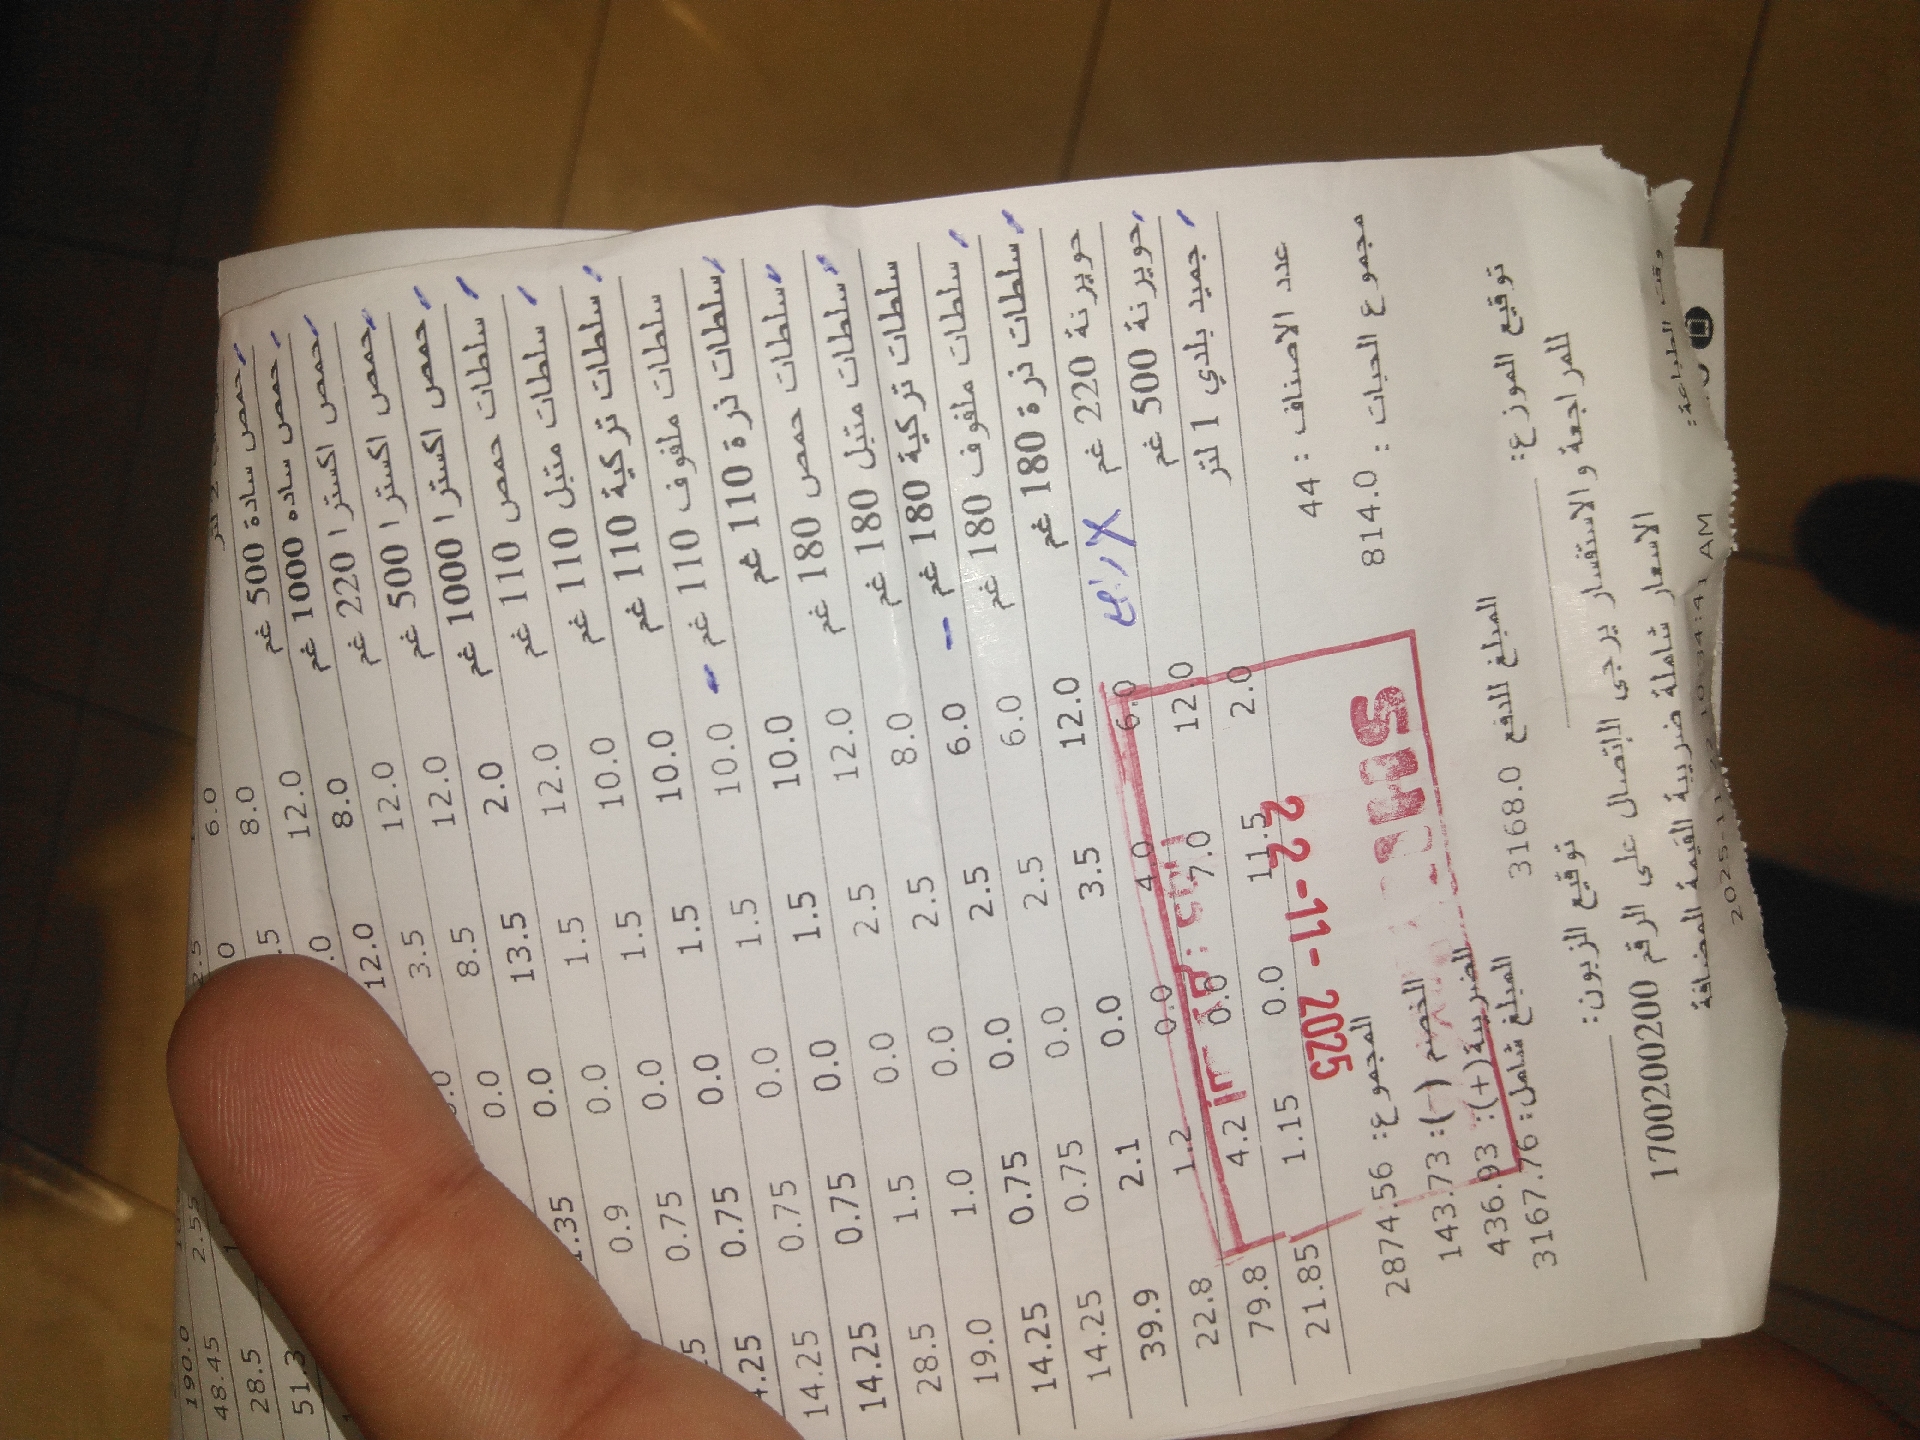 190.0
6.0 2.55 48.45
8.0 28.5
حمص سادة 500 غم 12.0 51.3
حمص ساده 1000 غم 8.0 12.0
حمص اكسترا 220 غم 12.0 3.5
حمص اكسترا 500 غم 12.0 8.5 0.0
حمص اكسترا 1000 غم 2.0 13.5 0.0 1.35
سلطات حمص 110 غم 12.0 1.5 0.0 0.9
سلطات متبل 110 غم 10.0 1.5 0.0 0.75
سلطات تركية 110 غم 10.0 1.5 0.0 0.75
سلطات ملفوف 110 غم 10.0 1.5 0.0 0.75 14.25
سلطات ذرة 110 غم 10.0 1.5 0.0 0.75 14.25
سلطات حمص 180 غم 12.0 2.5 0.0 1.5 28.5
سلطات متبل 180 غم 8.0 2.5 0.0 1.0 19.0
سلطات تركية 180 غم 6.0 2.5 0.0 0.75 14.25
سلطات ملفوف 180 غم 6.0 2.5 0.0 0.75 14.25
سلطات ذرة 180 غم 12.0 3.5 0.0 2.1 39.9
حويرنة 220 غم 6.0 4.0 0.0 1.2 22.8
حويرنة 500 غم 12.0 7.0 0.0 4.2 79.8
جميد بلدي 1 لتر 2.0 11.5 0.0 1.15 21.85
22-11-2025
عدد الاصناف : 44
المجموع: 2874.56
مجموع الحبات : 814.0
الخصم (-): 143.73
الضريبة(+): 436.93
المبلغ للدفع 3168.0
المبلغ شامل: 3167.76
توقيع الموزع:
توقيع الزبون:
للمراجعة والاستفسار يرجى الإتصال على الرقم 1700200200
الاسعار شاملة ضريبة القيمة المضافة
وقت الطباعة: